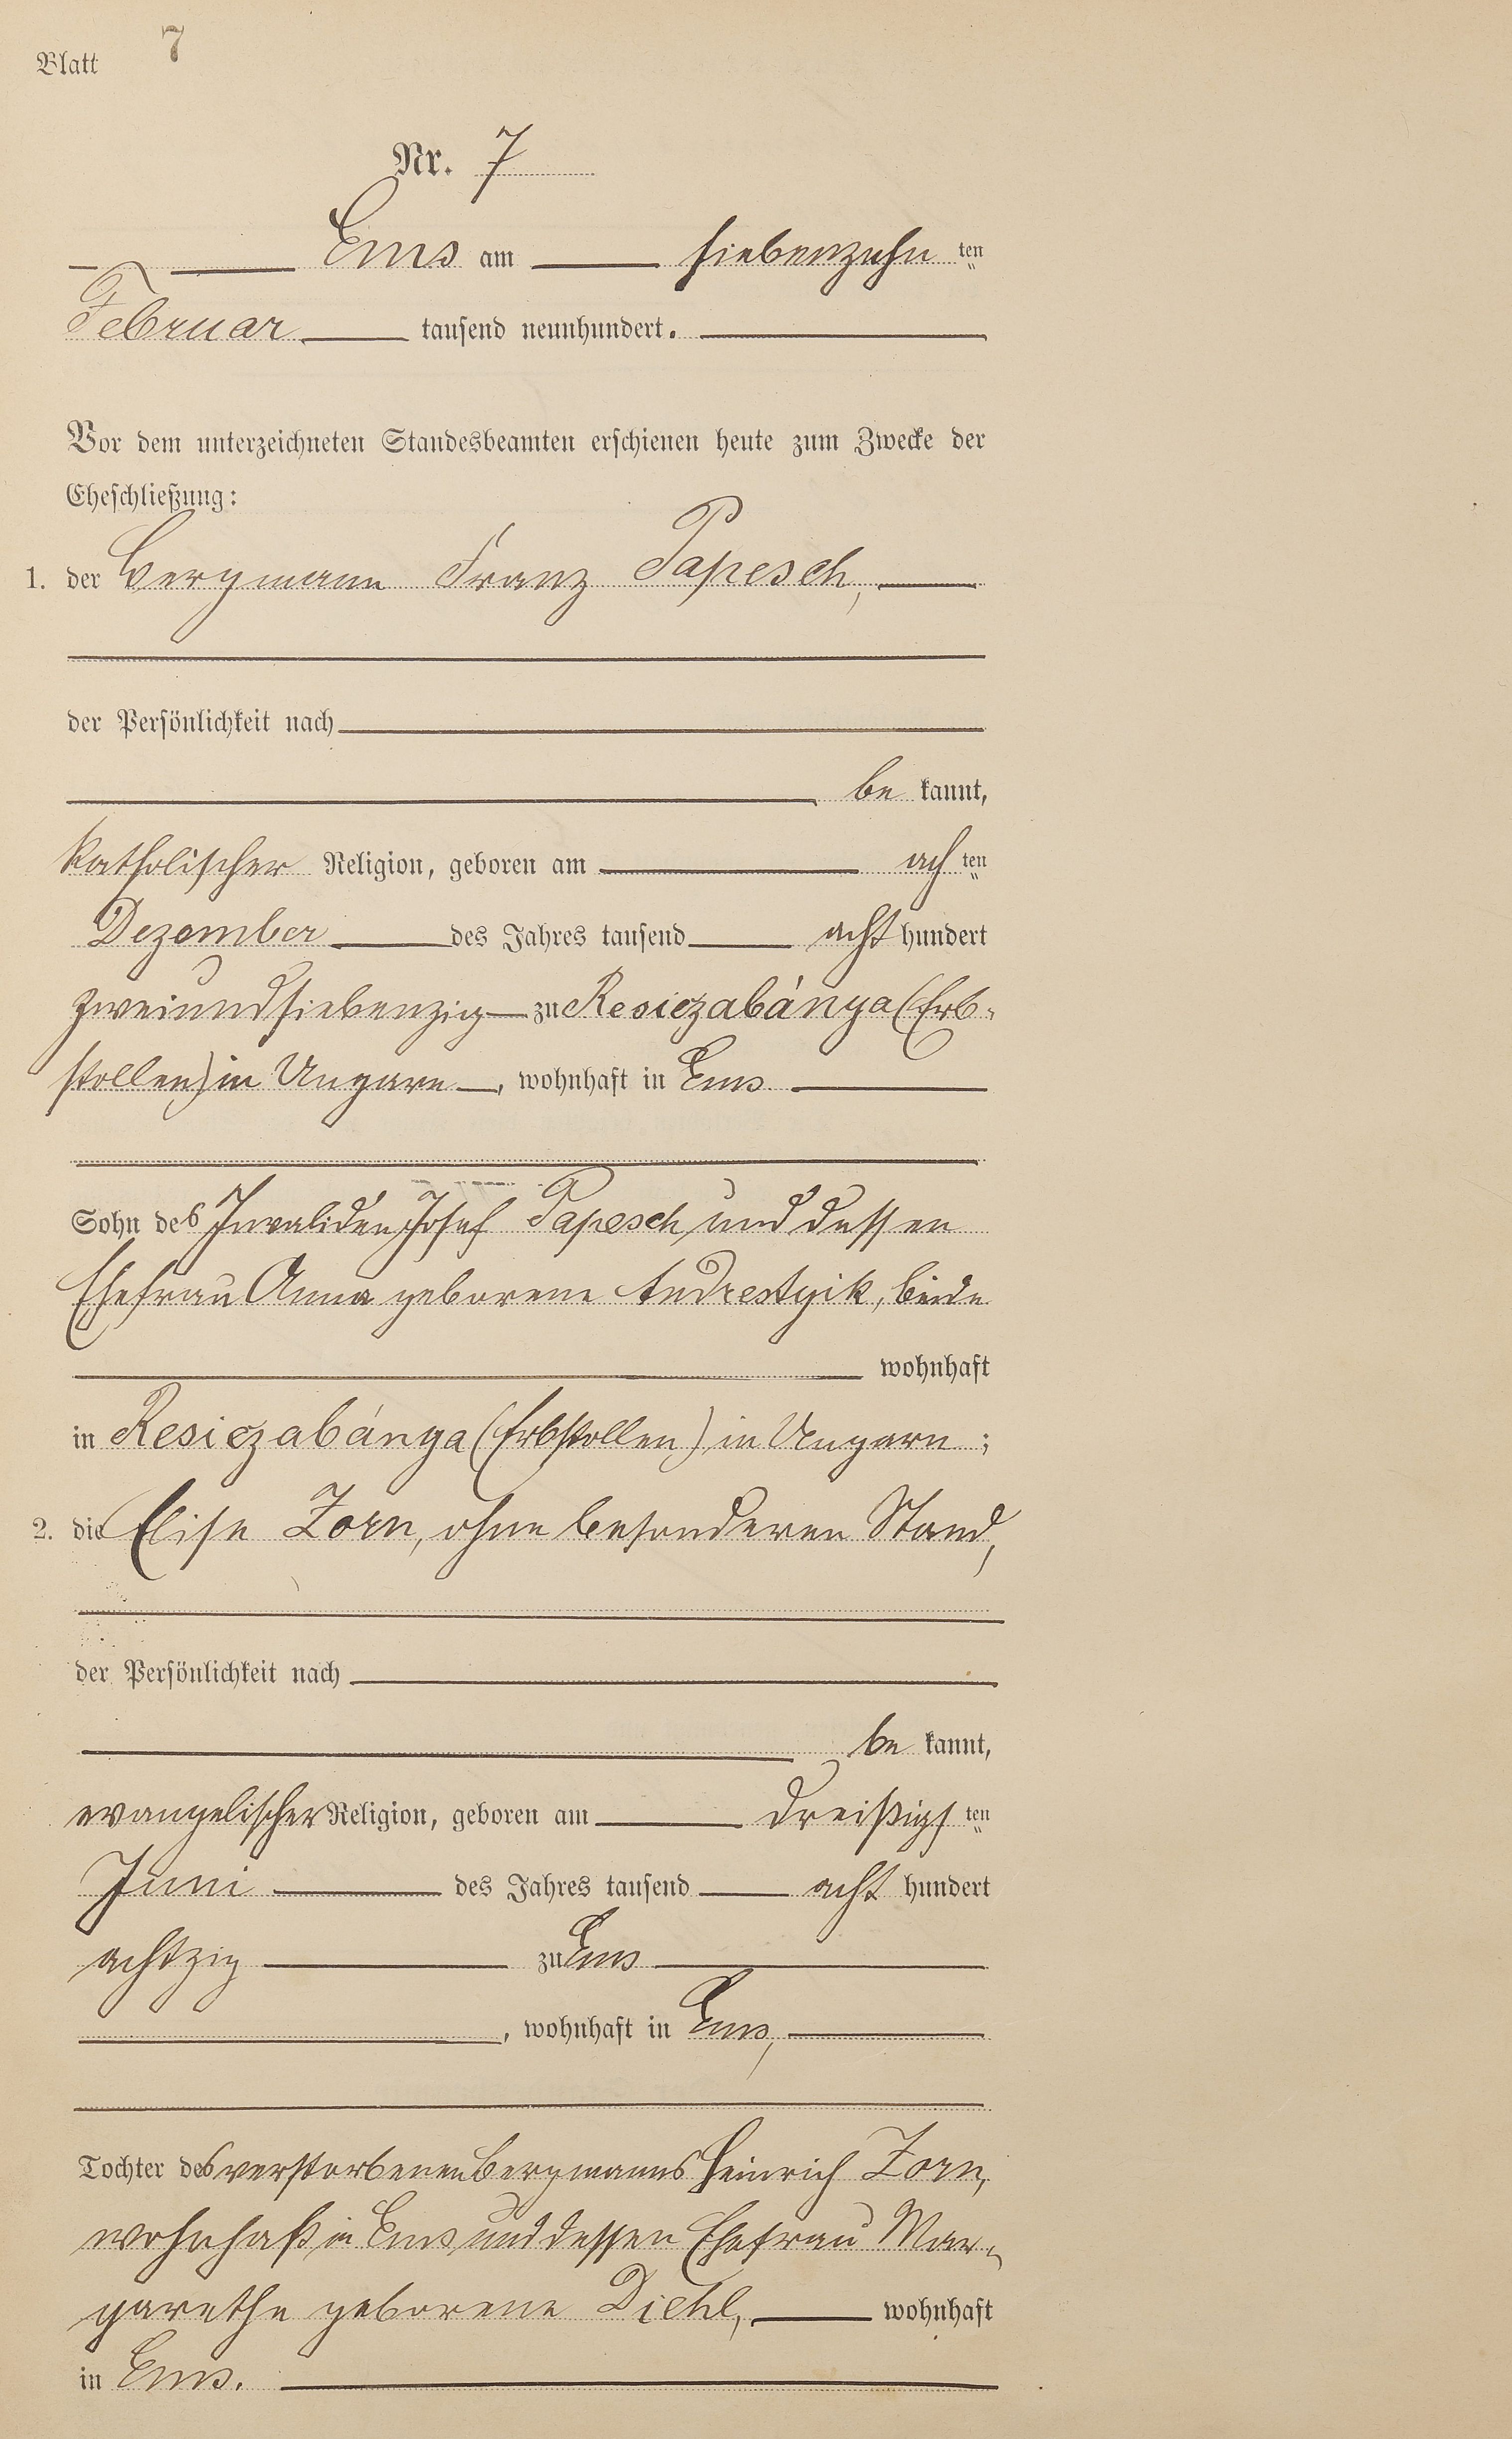 Blatt 7
Nr. 7
Ems am siebenzehn ten
Februar tausend neunhundert.
Vor dem unterzeichneten Standesbeamten erschienen heute zum Zwecke der
Eheschließung:
1. der Bergmann Franz Papesch,
der Persönlichkeit nach
be kannt,
katholischer Religion, geboren am ach ten
Dezember des Jahres tausend acht hundert
zweiundsiebenzig zu Resiczabánya (Erb-
stollen) in Ungarn, wohnhaft in Ems
Sohn des Invaliden Josef Papesch und dessen
Ehefrau Anna geborene Andrestyik, beide
wohnhaft
in Resiczabánya (Erbstollen) in Ungarn;
2. die Elise Zorn, ohne besonderen Stand,
der Persönlichkeit nach
be kannt,
evangelischer Religion, geboren am dreißigs ten
Juni des Jahres tausend acht hundert
achtzig zu Ems
, wohnhaft in Ems,
Tochter des verstorbenen Bergmanns Heinrich Zorn,
wohnhaft in Ems und dessen Ehefrau Mar-
garethe geborene Diehl, wohnhaft
in Ems.